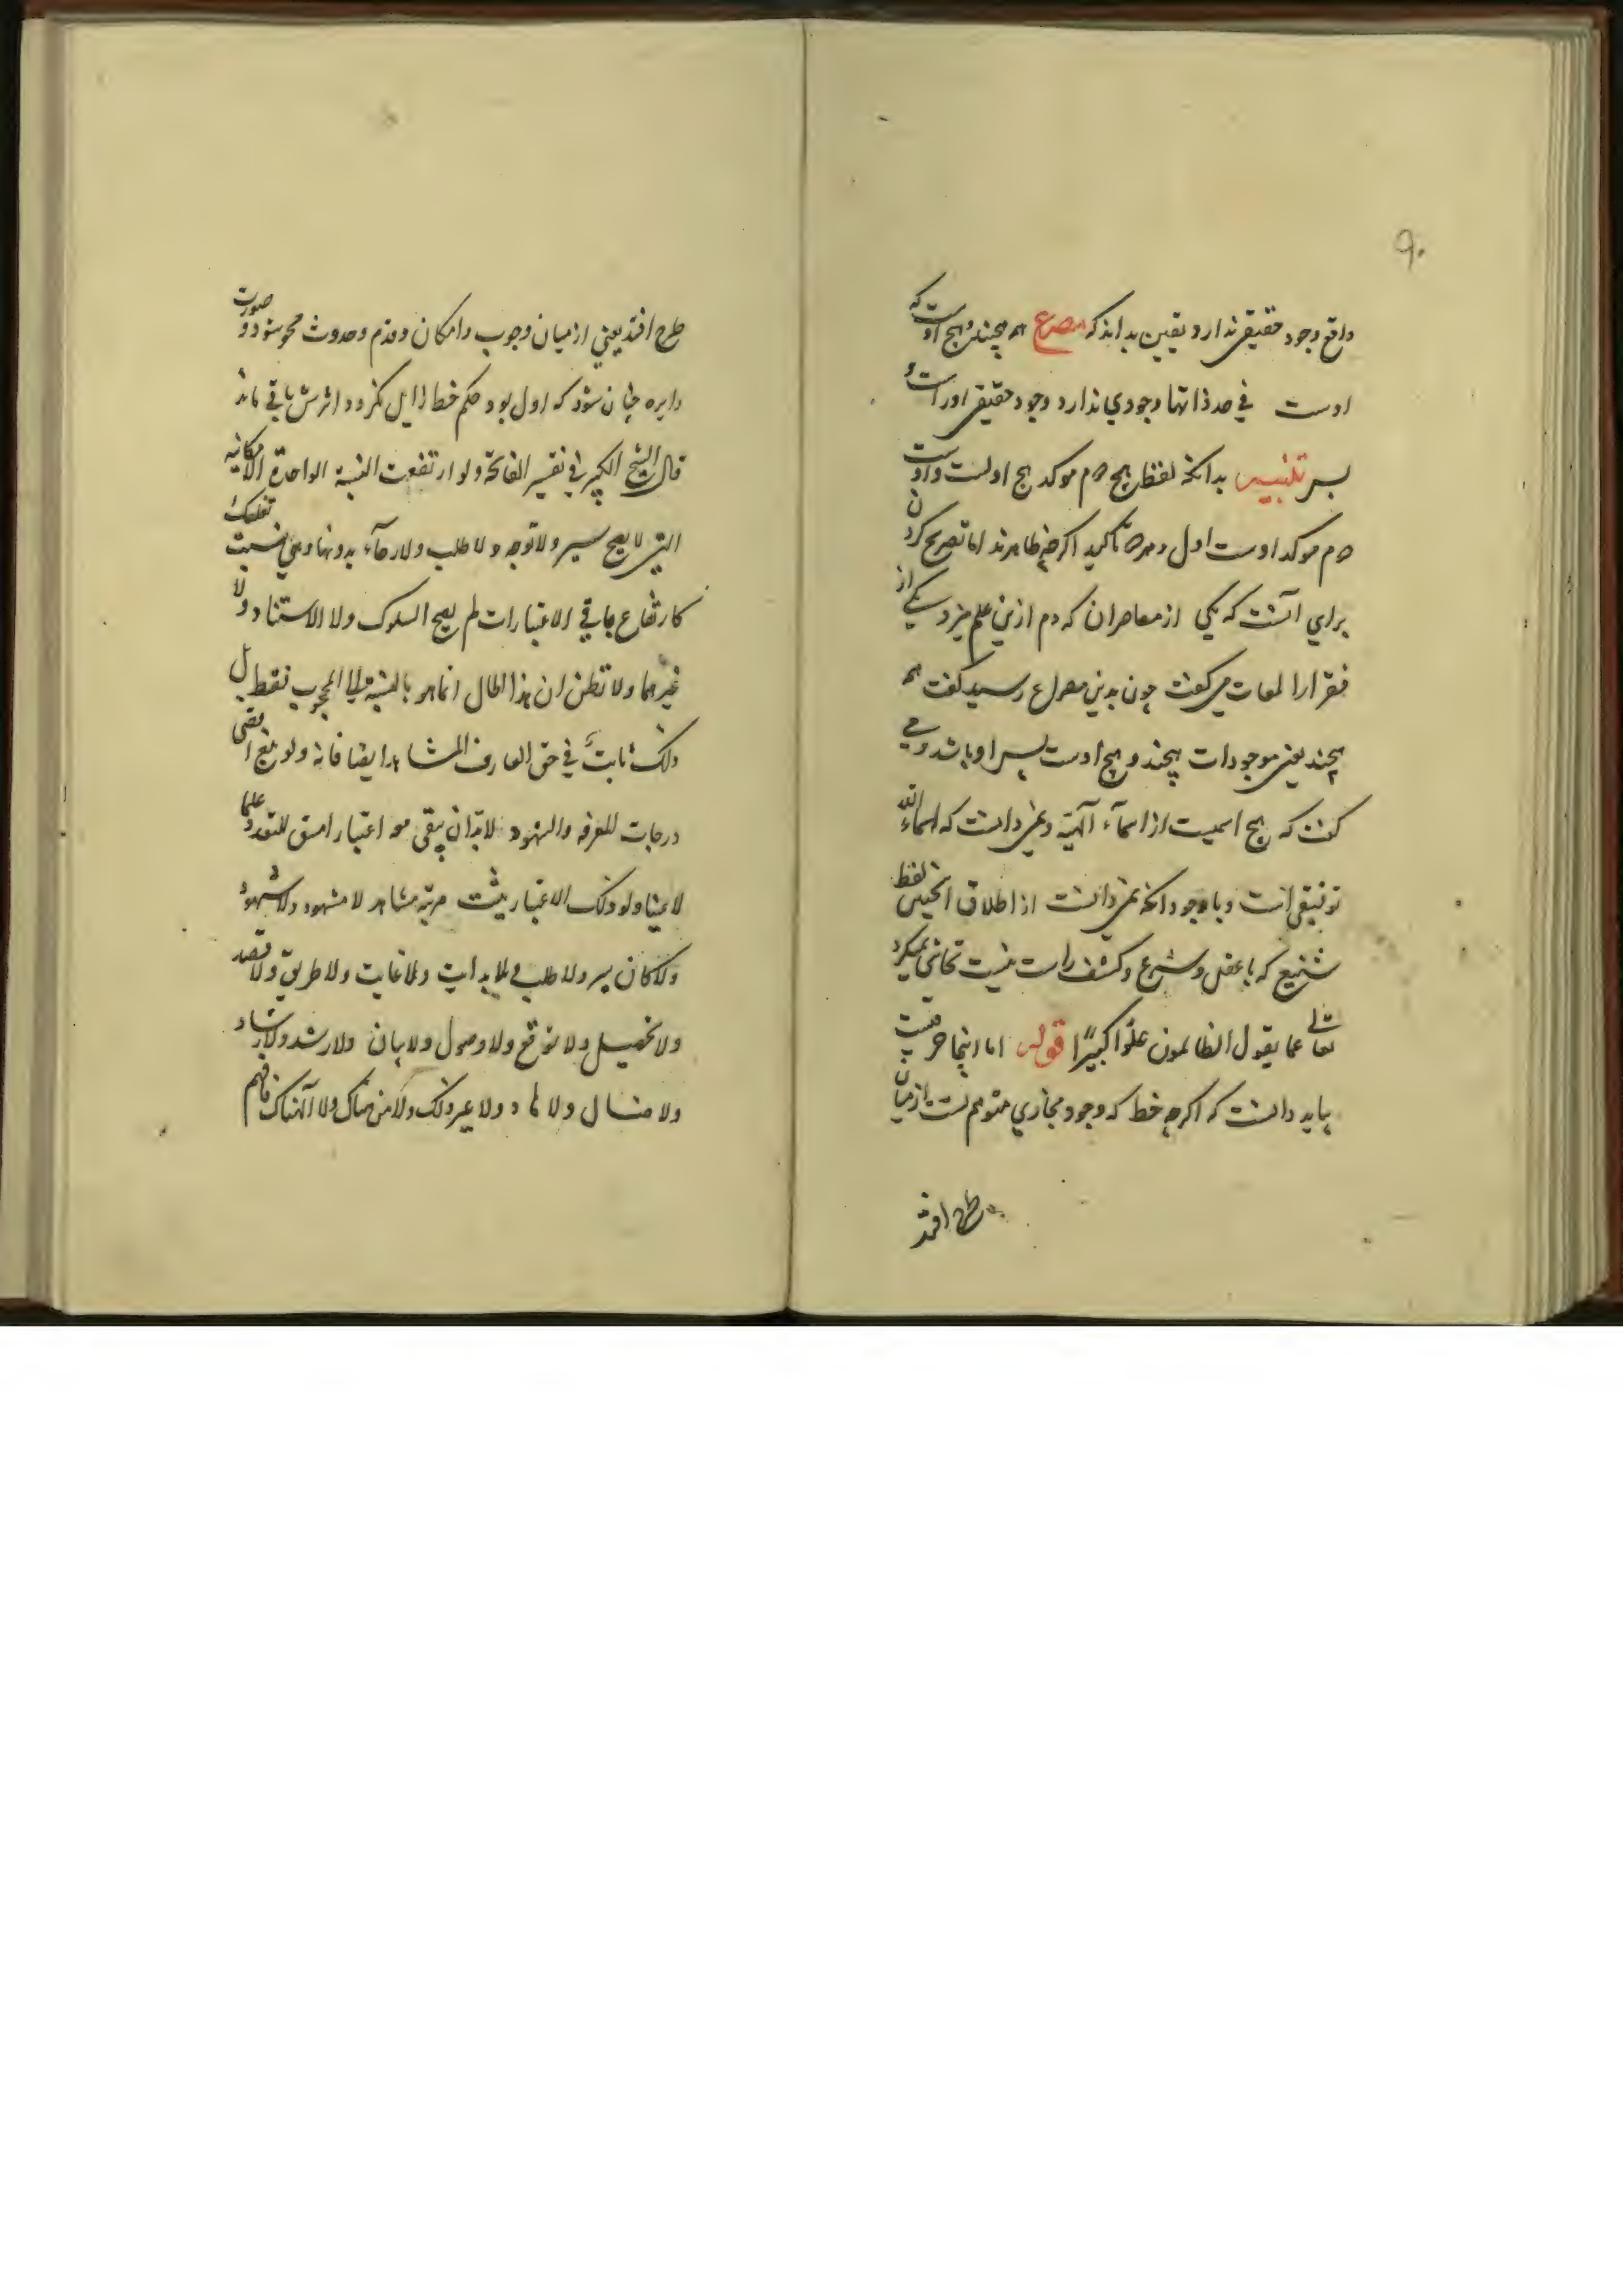 ۹۰
واقع وجود حقیقی ندارد و یقین بداند که مصرع همه هیچند و هیچ اوست که
اوست فی حد ذاتها وجودی ندارد وجود حقیقی اوراست و
بس تنبیه بدانکه لفظ هیچ دوم موکد هیچ اولست و اوست
دوم موکد اوست اول تاکید اگرچه ظاهرند اما تصریح کردن
برای آنست که یکی از معاصران که دم ازین علم میزد یکی از
فقرا را لمعات می گفت چون بدین مصراع رسید گفت همه
هیچند یعنی موجودات هیچند و هیچ اوست پس او باشد و می
گفت که هیچ اسمیست از اسمآء آلهیه و نمی دانست که اسماء الله
توقیفی است و با وجود آنکه نمی دانست از اطلاق انچنین لفظ
شنیع که با عقل و شرع و کشف راست نیست تحاشی نمیکرد
تعالی عما یقول الظالمون علوا کبیرًا قوله اما اینجا حرفیست
باید دانست که اگرچه خط که وجود مجازی متوهم است از میان
طرح افتد
طرح افتد یعنی از میان وجوب و امکان و قدم و حدوث محو شود و صورت
دایره چنان شود که اول بود حکم خط زایل نگردد و اثرش باقی ماند
قال الشیخ الکبیر فی تفسیر الفاتحة ولو ارتفعت النسبة الواحدة الامکانیه
التی لا یصح سیر ولا توجه ولا طلب ولا رجآء بدونها
کارتفاع باقی الاعتبارات لم یصح السلوک ولا الاستناد ولا
غیرهما ولا تظن ان هذا الحال انما هو بالنسبة الی المحجوب فقط بل
ذلک ثابت فی حق العارف المشاهد ایضا فانه ولو بلغ اقصی
درجات المعرفه والشهود لا بد ان یبقی معه اعتبار للتعدد علما
لا عینا ولولا ذلک الاعتبار مرتبه مشاهد لا مشهود ولا شهود
ولا کان سیر ولا طلب ولا بدایت ولا غایت ولا طریق ولا قصد
ولا تحصیل ولا توقع ولا وصول ولا بیان ولا رشد ولا ارشاد
ولا ضال ولا هاد ولا غیر ذلک ولا من هناک ولا الی هناک فافهم